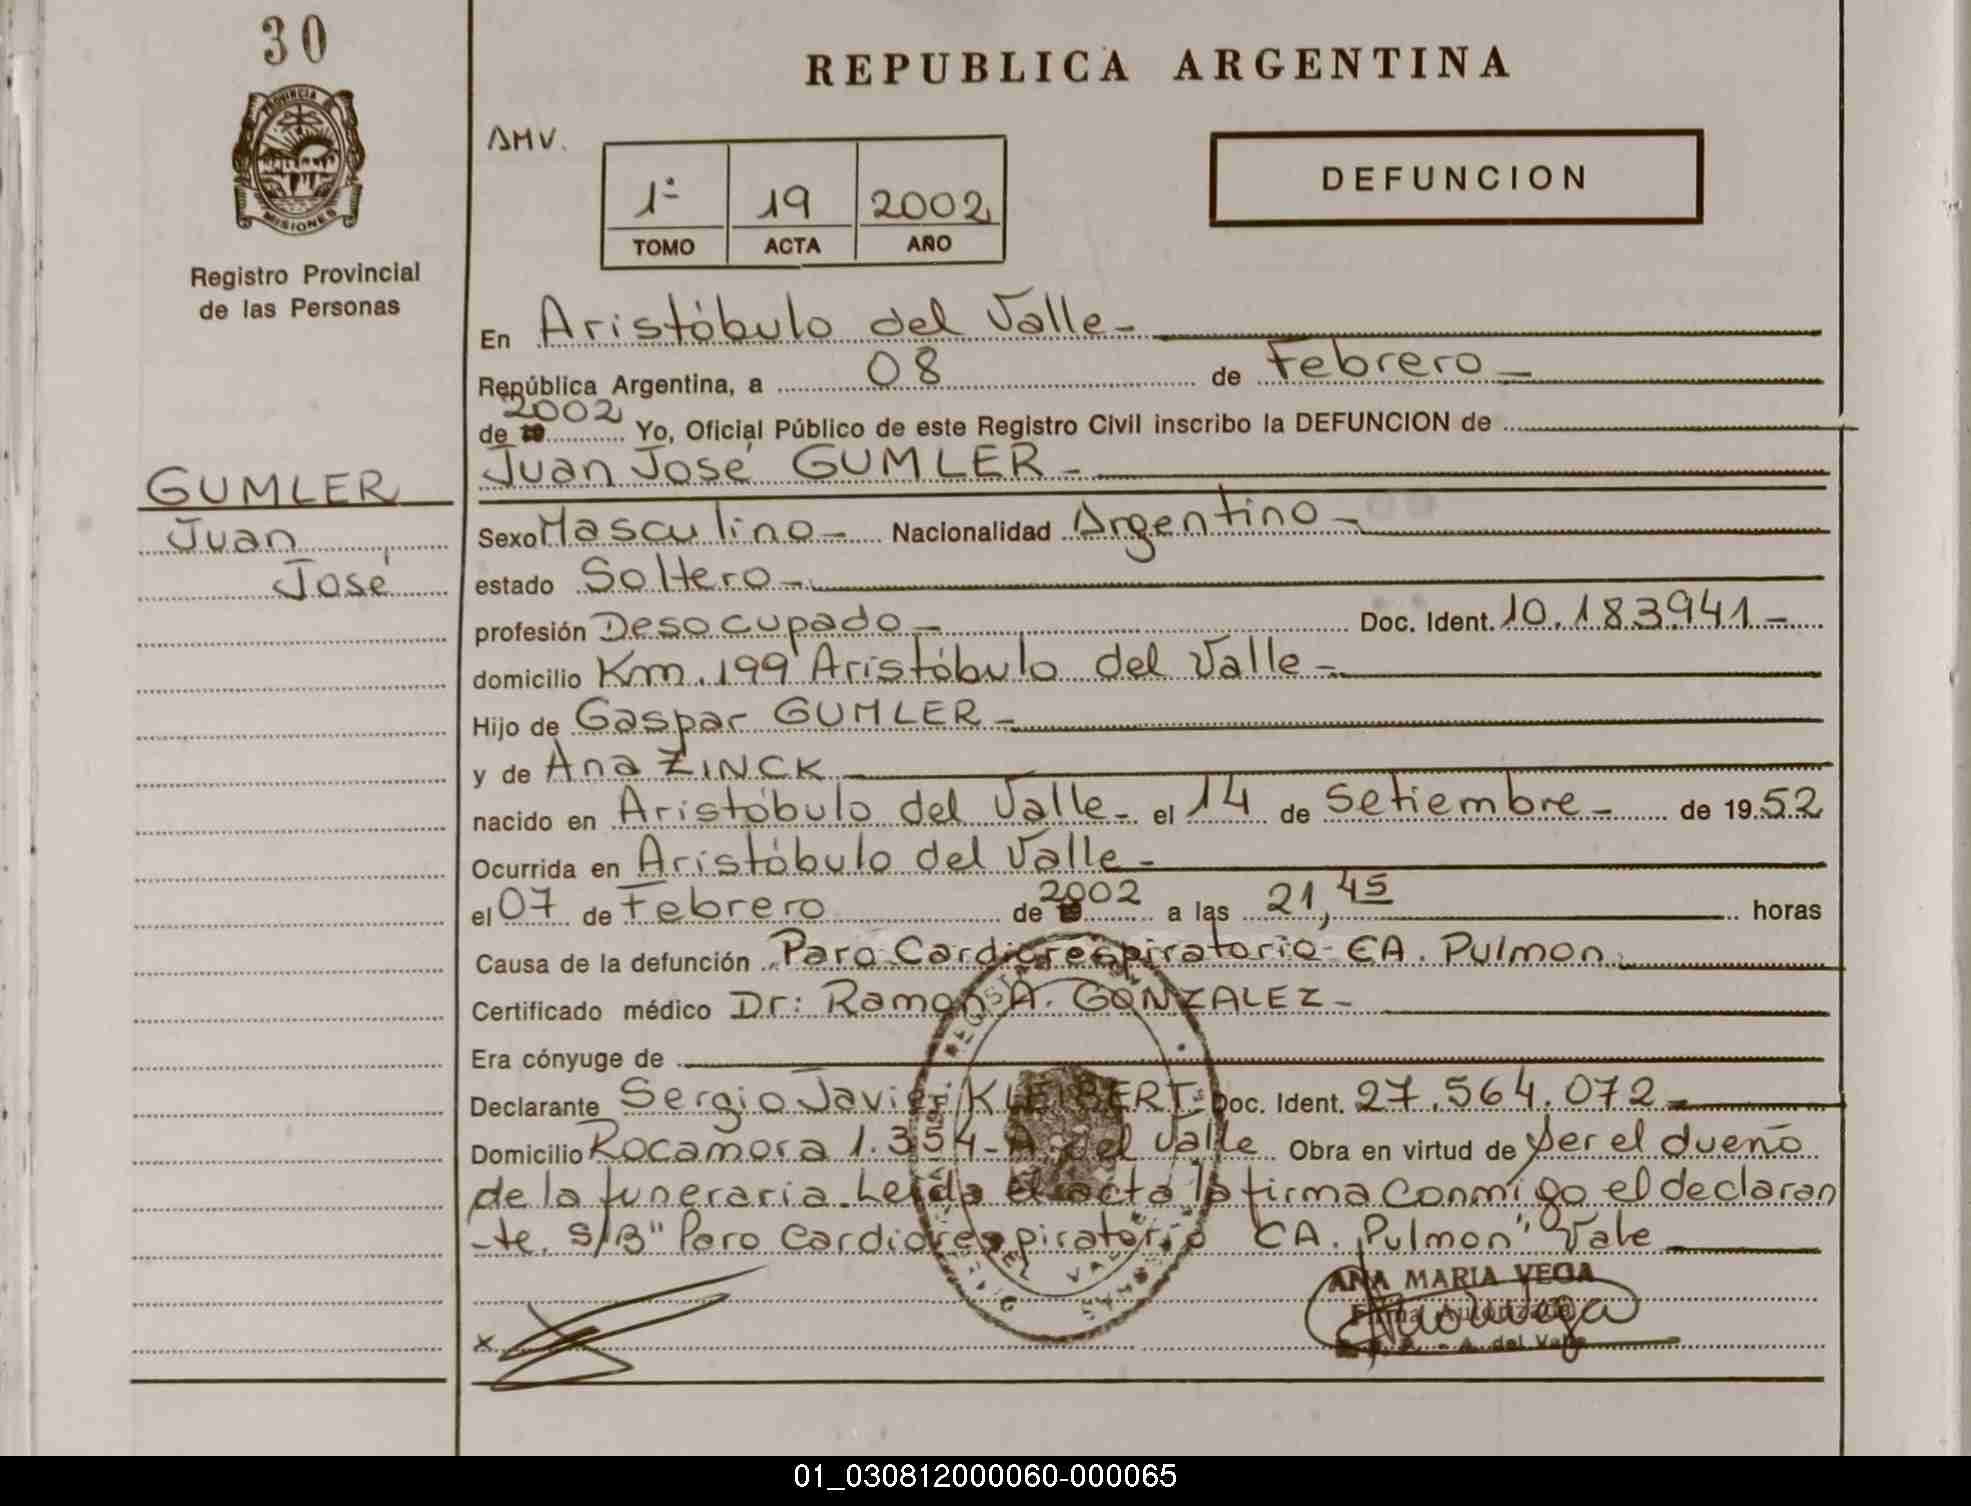 30
PROVINCIA DE
MISIONES
Registro Provincial
de las Personas
GUMLER
Juan
José
REPUBLICA ARGENTINA
AMV.
1º 19 2002
TOMO ACTA AÑO
DEFUNCION
En Aristóbulo del Valle -
República Argentina, a 08 de Febrero -
de 19 2002 Yo, Oficial Público de este Registro Civil inscribo la DEFUNCION de
Juan José GUMLER -
Sexo Masculino - Nacionalidad Argentino -
estado Soltero -
profesión Desocupado - Doc. Ident. 10.183941 -
domicilio Km. 199 Aristóbulo del Valle -
Hijo de Gaspar GUMLER -
y de Ana ZINCK
nacido en Aristóbulo del Valle - el 14 de Setiembre - de 19 52
Ocurrida en Aristóbulo del Valle -
el 07 de Febrero de 19 2002 a las 21,45 horas
Causa de la defunción Paro Cardiorespiratorio - CA. Pulmon
Certificado médico Dr: Ramon A. GONZALEZ -
Era cónyuge de
Declarante Sergio Javier KLEIBERT - Doc. Ident. 27.564.072 -
Domicilio Rocamora 1.354 - A. del Valle Obra en virtud de ser el dueño
de la funeraria. Leida el acta la firma conmigo el declaran
-te. S/B "Paro Cardiorespiratorio CA. Pulmon" Vale
ANA MARIA VEGA
Firma Autorizada
- A. del Valle
x
01_030812000060-000065